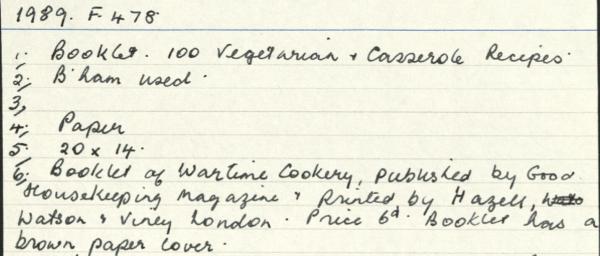 1989. F 478
1. Booklet. 100 Vegetarian & Casserole Recipes.
2. B'ham used.
3,
4; Paper
5. 20 x 14.
6; Booklet of Wartime Cookery, published by Good
Housekeeping Magazine & Printed by Hazell,
Watson & Viney London. Price 6d. Booklet has a
brown paper cover.